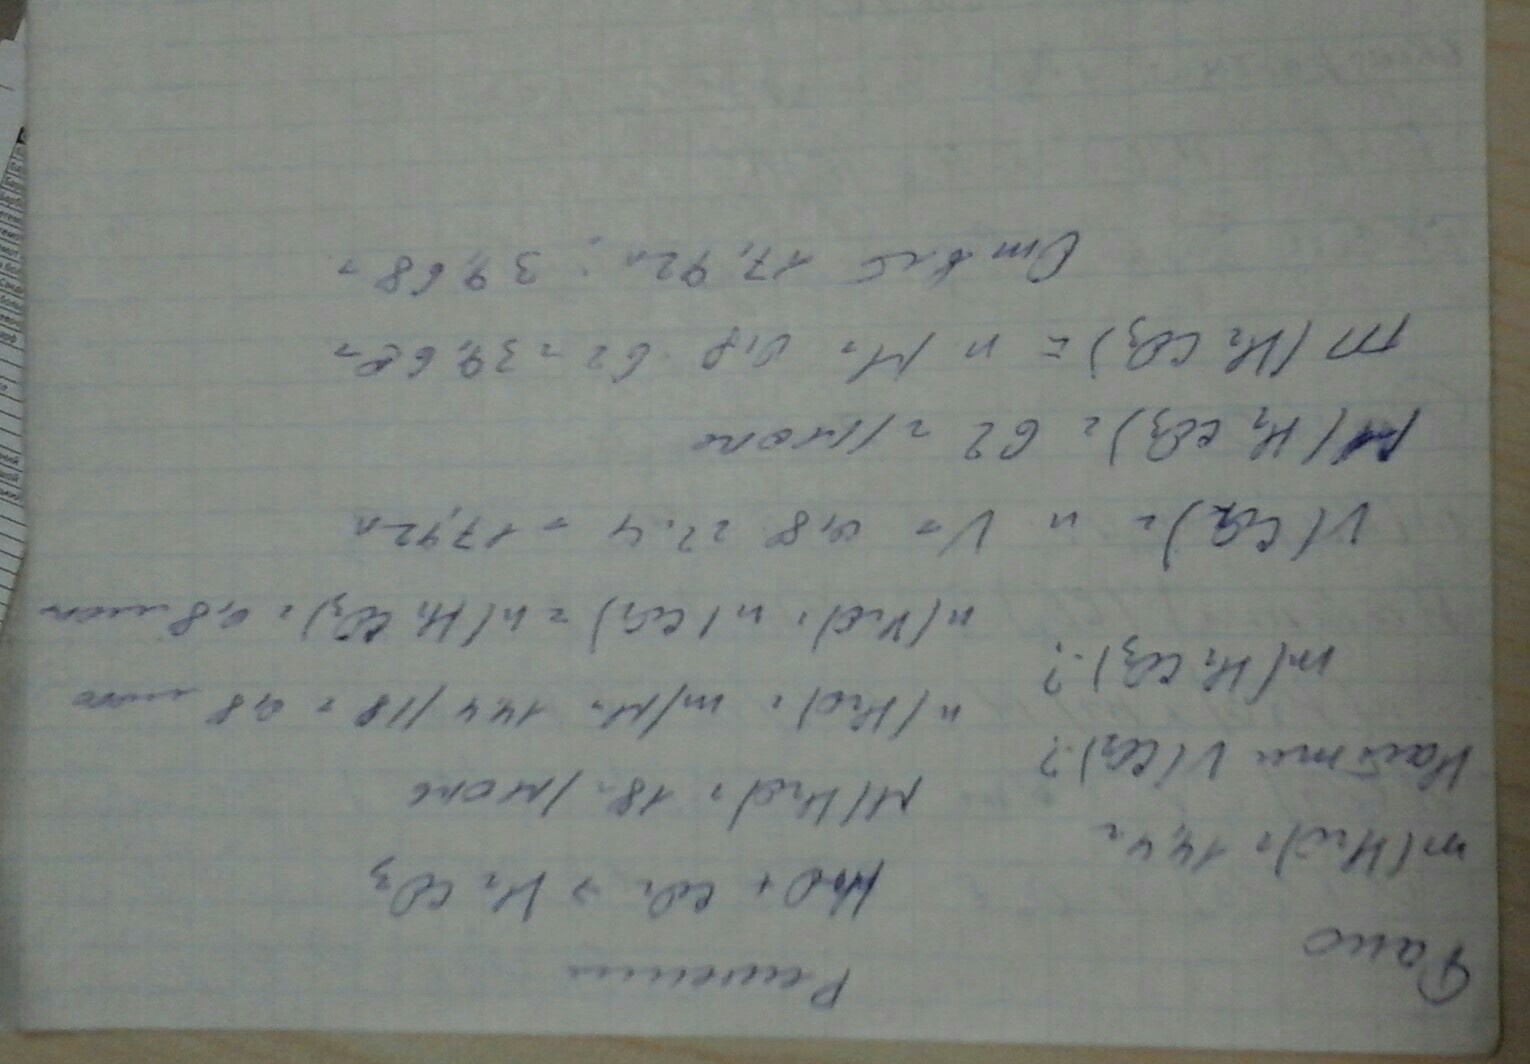 Дано
m(H2O) = 14,4 г
Найти V(CO2)-?
m(H2CO3)-?
Решение
H2O + CO2 → H2CO3
M(H2O) = 18 г/моль
n(H2O) = m/M = 14.4/18 = 0,8 моль
n(H2O) = n(CO2) = n(H2CO3) = 0,8 моль
V(CO2) = n V = 0,8 22.4 = 17,92л
M(H2CO3) = 62 г/моль
m(H2CO3) = n M = 0,8 · 62 = 39,68г
Ответ 17,92л; 39,68г